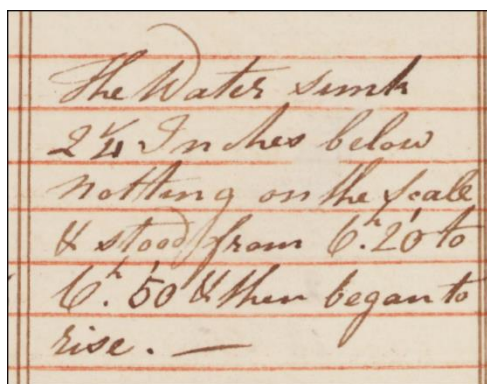 The Water sunk
2 1/4 Inches below
nothing on the scale
& stood from 6.h 20' to
6.h 50' & then began to
rise. —